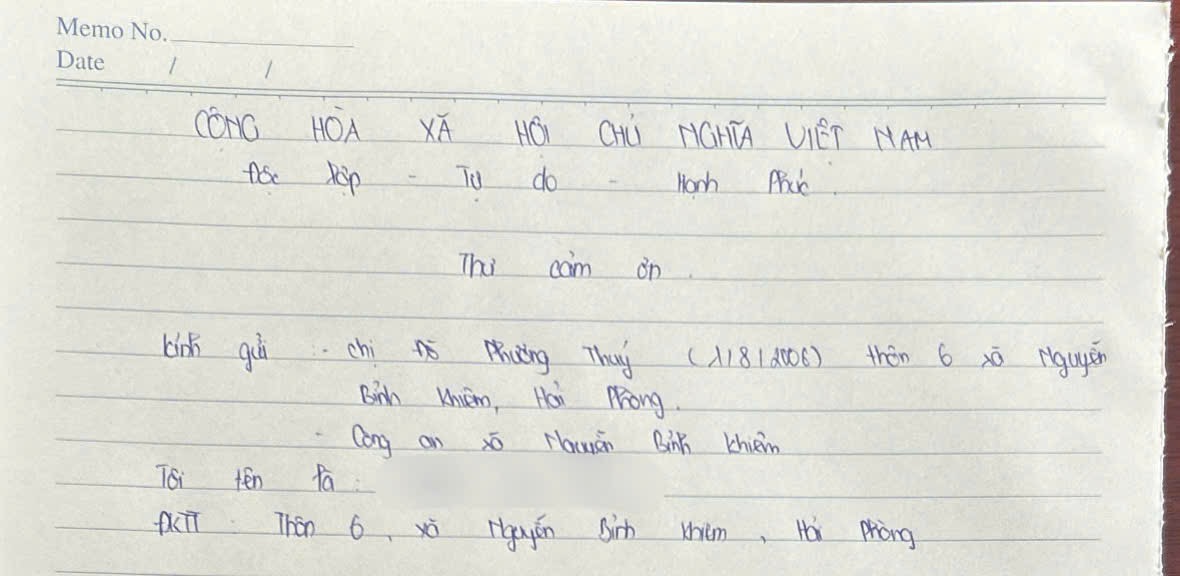 Memo No.
Date / /
CỘNG HÒA XÃ HỘI CHỦ NGHĨA VIỆT NAM
Độc lập - Tự do - Hạnh Phúc.
Thư cảm ơn.
Kính gửi: - chị Đỗ Phương Thuý (1/8/2006) thôn 6 xã Nguyễn
Bỉnh Khiêm, Hải Phòng.
- Công an xã Nguyễn Bỉnh Khiêm
Tôi tên là:
ĐKTT: Thôn 6, xã Nguyễn Bỉnh Khiêm, Hải Phòng